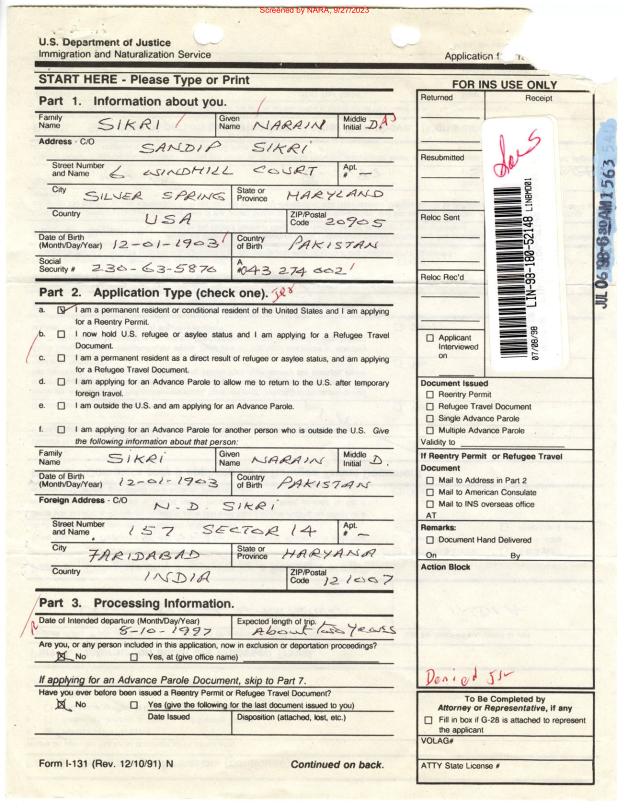 Screened by NARA, 9/27/2023
U.S. Department of Justice
Immigration and Naturalization Service
Application f
START HERE - Please Type or Print
Part 1. Information about you.
Family Name SIKRI Given Name NARAIN Middle Initial D.
Address - C/O SANDIP SIKRI
Street Number and Name 6 WINDHILL COURT Apt. # —
City SILVER SPRING State or Province MARYLAND
Country USA ZIP/Postal Code 20905
Date of Birth (Month/Day/Year) 12-01-1903 Country of Birth PAKISTAN
Social Security # 230-63-5876 A #043 274 002
Part 2. Application Type (check one).
a. I am a permanent resident or conditional resident of the United States and I am applying
for a Reentry Permit.
b. I now hold U.S. refugee or asylee status and I am applying for a Refugee Travel
Document.
c. I am a permanent resident as a direct result of refugee or asylee status, and am applying
for a Refugee Travel Document.
d. I am applying for an Advance Parole to allow me to return to the U.S. after temporary
foreign travel.
e. I am outside the U.S. and am applying for an Advance Parole.
f. I am applying for an Advance Parole for another person who is outside the U.S. Give
the following information about that person:
Family Name SIKRI Given Name NARAIN Middle Initial D.
Date of Birth (Month/Day/Year) 12-01-1903 Country of Birth PAKISTAN
Foreign Address - C/O N.D. SIKRI
Street Number and Name 157 SECTOR 14 Apt. # —
City FARIDABAD State or Province HARYANA
Country INDIA ZIP/Postal Code 121007
Part 3. Processing Information.
Date of Intended departure (Month/Day/Year) 8-10-1997 Expected length of trip. About two Years
Are you, or any person included in this application, now in exclusion or deportation proceedings?
No Yes, at (give office name)
If applying for an Advance Parole Document, skip to Part 7.
Have you ever before been issued a Reentry Permit or Refugee Travel Document?
No Yes (give the following for the last document issued to you)
Date Issued Disposition (attached, lost, etc.)
Form I-131 (Rev. 12/10/91) N Continued on back.
FOR INS USE ONLY
Returned Receipt
Resubmitted
Reloc Sent
Reloc Rec'd
Applicant
Interviewed
on
07/08/98 LIN-98-180-52148 LINBMD01
JUL 06 98-630AM1563
Document Issued
Reentry Permit
Refugee Travel Document
Single Advance Parole
Multiple Advance Parole
Validity to
If Reentry Permit or Refugee Travel
Document
Mail to Address in Part 2
Mail to American Consulate
Mail to INS overseas office
AT
Remarks:
Document Hand Delivered
On By
Action Block
Denied
To Be Completed by
Attorney or Representative, if any
Fill in box if G-28 is attached to represent
the applicant
VOLAG#
ATTY State License #